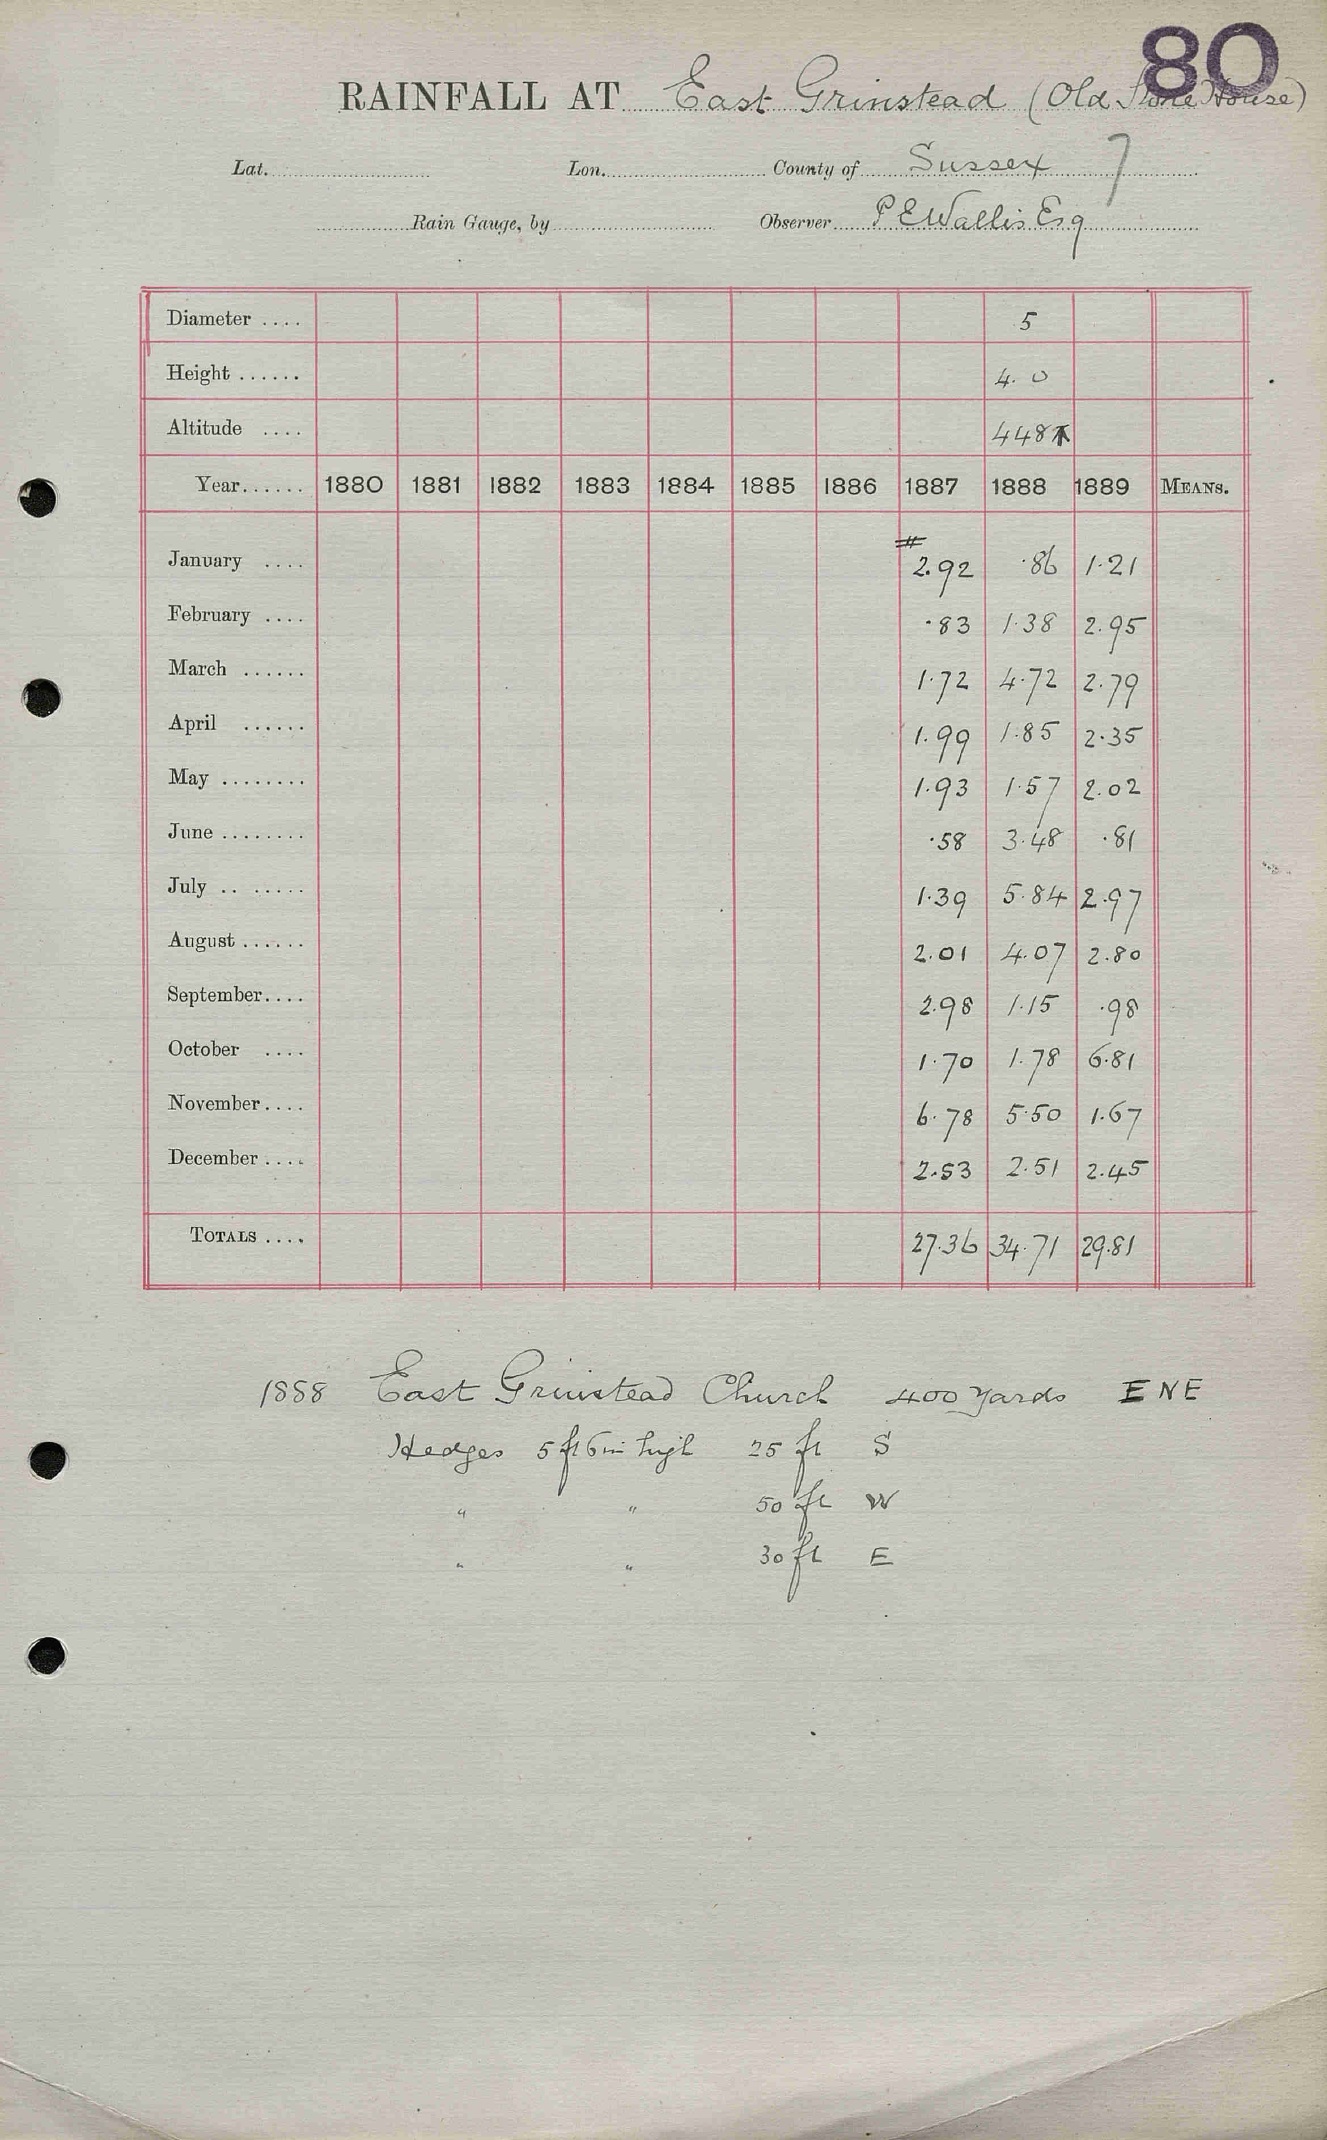 80
RAINFALL AT East Grinstead (Old Stone House)
Lat. Lon. County of Sussex 7
Rain Gauge, by Observer P E Wallis Esq
Diameter .... 5
Height ...... 4. 0
Altitude .... 448
Year...... 1880 1881 1882 1883 1884 1885 1886 1887 1888 1889 MEANS.
January .... 2.92 .86 1.21
February .... .83 1.38 2.95
March ...... 1.72 4.72 2.79
April ...... 1.99 1.85 2.35
May ........ 1.93 1.57 2.02
June ........ .58 3.48 .81
July .. ..... 1.39 5.84 2.97
August ...... 2.01 4.07 2.80
September.... 2.98 1.15 .98
October .... 1.70 1.78 6.81
November.... 6.78 5.50 1.67
December .... 2.53 2.51 2.45
TOTALS .... 27.36 34.71 29.81
1888 East Grinstead Church 400 yards E N E
Hedges 5 ft 6 in high 25 ft S
" " 50 ft W
" " 30 ft E